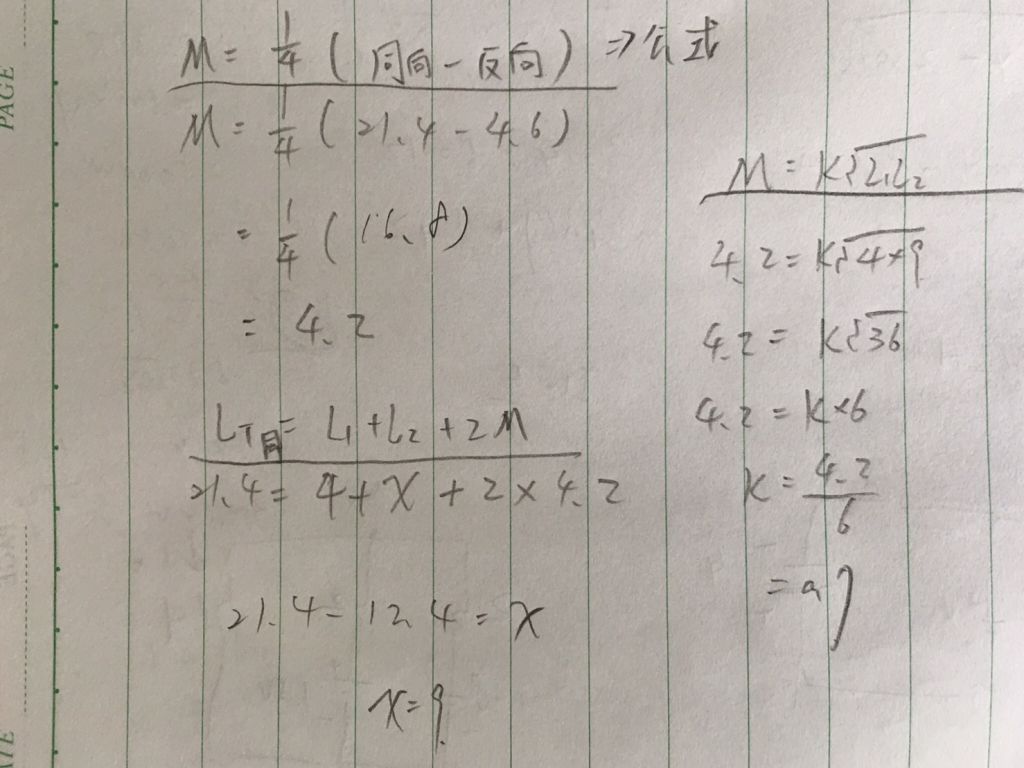 PAGE
M = 1/4 ( 同向 - 反向 ) ⇒ 公式
M = 1/4 ( 21.4 - 4.6 )
= 1/4 ( 16.8 )
= 4.2
LT同 = L1 + L2 + 2M
21.4 = 4 + X + 2 × 4.2
21.4 - 12.4 = X
X = 9
M = K√L1L2
4.2 = K√4×9
4.2 = K√36
4.2 = K×6
K = 4.2/6
= 0.7